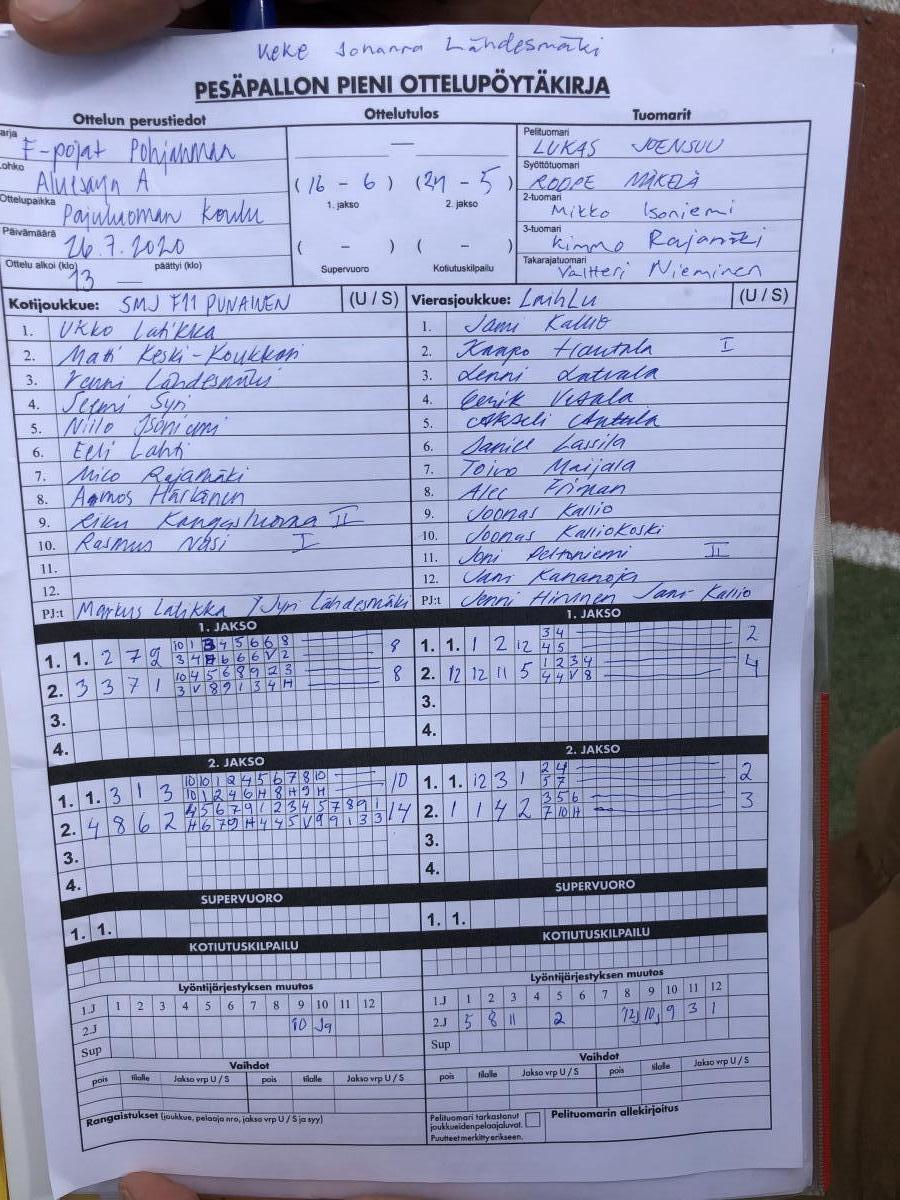 Keke Johanna Lähdesmäki
PESÄPALLON PIENI OTTELUPÖYTÄKIRJA
Ottelun perustiedot Ottelutulos Tuomarit
arja F-pojat Pohjanmaan
ohko Aluesarja A
Ottelupaikka Pajuluoman Koulu
Päivämäärä 26.7.2020
Ottelu alkoi (klo) 13 päättyi (klo) —
—
(16 - 6) (24 - 5)
1. jakso 2. jakso
( - ) ( - )
Supervuoro Kotiutuskilpailu
Pelituomari LUKAS JOENSUU
Syöttötuomari ROOPE MÄKELÄ
2-tuomari Mikko Isoniemi
3-tuomari Kimmo Rajamäki
Takarajatuomari Valtteri Nieminen
Kotijoukkue: SMJ F11 PUNAINEN (U / S)
1. Ukko Latikka
2. Matti Keski-Koukkari
3. Venni Lähdesmäki
4. Seemi Syri
5. Niilo Isoniemi
6. Eeli Lahti
7. Mico Rajamäki
8. Aamos Harkanen
9. Riku Kangasluoma II
10. Rasmus Näsi I
11.
12.
PJ:t Markus Latikka / Jyri Lähdesmäki
Vierasjoukkue: LaihLu (U / S)
1. Jami Kallio
2. Kaapo Hautala I
3. Lenni Latvala
4. Eerik Vesala
5. Akseli Anttila
6. Daniel Lassila
7. Toivo Maijala
8. Alec Friman
9. Joonas Kallio
10. Joonas Kalliokoski
11. Joni Peltoniemi II
12. Jani Kananoja
PJ:t Jenni Hirvinen Jani Kallio
1. JAKSO
1. 1. 2 7 9 8
10 1 3 4 5 6 6 8
3 4 6 6 6 V 2
2. 3 3 7 1 8
10 4 5 6 8 9 2 3
3 V 8 9 1 3 4 H
3.
4.
1. JAKSO
1. 1. 1 2 12 2
3 4
4 5
2. 12 12 11 5 4
1 2 3 4
4 4 V 8
3.
4.
2. JAKSO
1. 1. 3 1 3 10
10 10 1 2 4 5 6 7 8 10
10 1 2 4 6 H 8 H 9 H
2. 4 8 6 2 14
4 5 6 7 9 1 2 3 4 5 7 8 9 1
H 6 7 9 H 4 4 5 V 9 9 1 3 3
3.
4.
2. JAKSO
1. 1. 12 3 1 2
2 4
5 7
2. 1 1 4 2 3
3 5 6
7 10 H
3.
4.
SUPERVUORO
1. 1.
SUPERVUORO
1. 1.
KOTIUTUSKILPAILU
KOTIUTUSKILPAILU
Lyöntijärjestyksen muutos
1.J 1 2 3 4 5 6 7 8 9 10 11 12
2.J 10 J9
Sup
Lyöntijärjestyksen muutos
1.J 1 2 3 4 5 6 7 8 9 10 11 12
2.J 5 8 11 2 12J 10J 9 3 1
Sup
Vaihdot
pois tilalle Jakso vrp U / S pois tilalle Jakso vrp U / S
Vaihdot
pois tilalle Jakso vrp U / S pois tilalle Jakso vrp U / S
Rangaistukset (joukkue, pelaaja nro, jakso vrp U / S ja syy)
Pelituomari tarkastanut
joukkueidenpelaajaluvat.
Puutteet merkitty erikseen.
Pelituomarin allekirjoitus